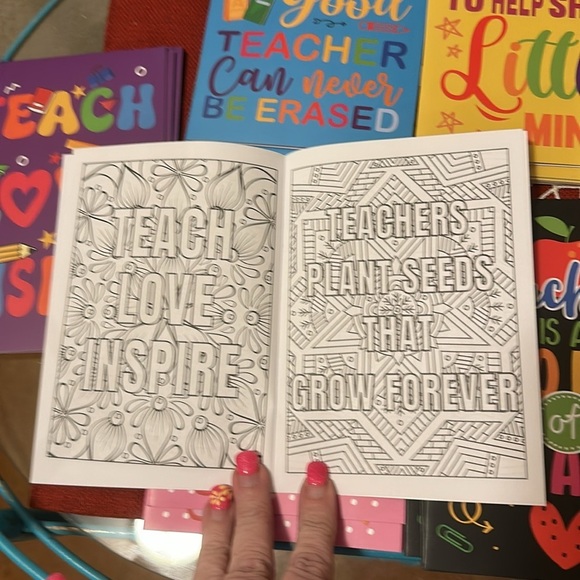 TEACH
Good
TEACHER
Can never
BE ERASED
TO HELP
MIN
TEACH
LOVE
INSPIRE
TEACHERS
PLANT SEEDS
THAT
GROW FOREVER
IS A
of
A